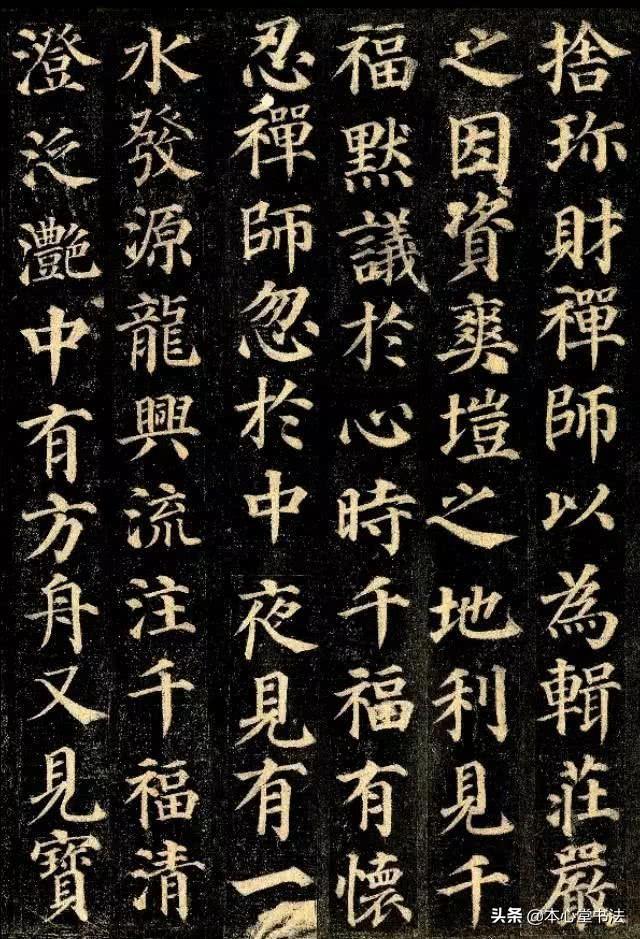 捨珎財禪師以為輯莊嚴
之因資爽塏之地利見千
福默議於心時千福有懷
忍禪師忽於中夜見有一
水發源龍興流注千福清
澄泛灩中有方舟又見寶
头条 @本心堂书法